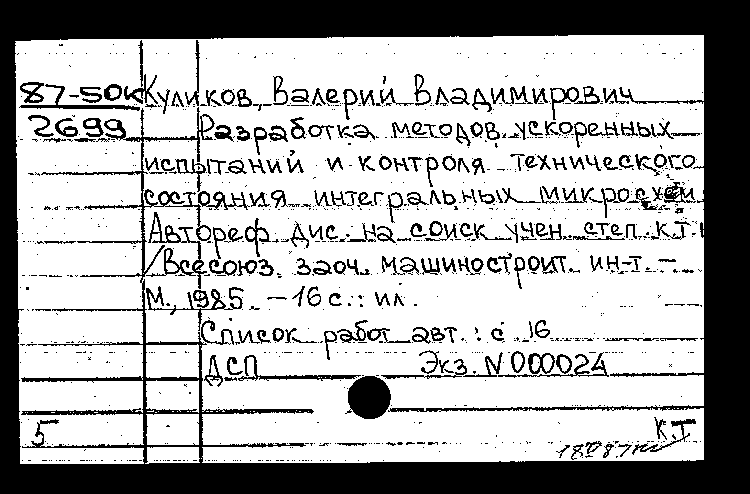 87-50К Куликов, Валерий Владимирович
2699 Разработка методов ускоренных
испытаний и контроля технического
состояния интегральных микросхем:
Автореф. дис. на соиск. учен. степ. к.т.н
/Всесоюз. заоч. машиностроит. ин-т. -
М., 1985. - 16 с.: ил.
Список работ авт.: с. 16
ДСП Экз. N 000024
5 К.Т